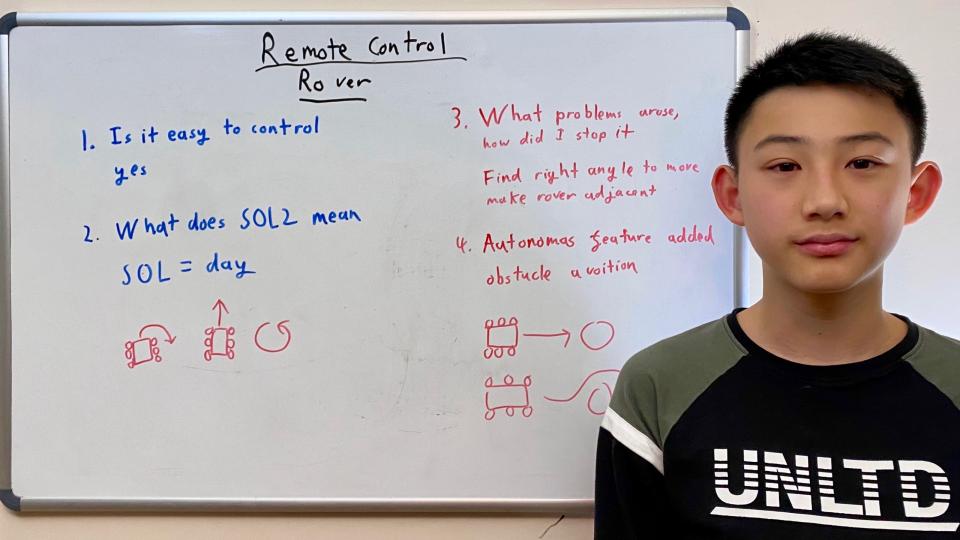 Remote Control
Rover
1. Is it easy to control
yes
2. What does SOL2 mean
SOL = day
3. What problems arose,
how did I stop it
Find right angle to move
make rover adjacent
4. Autonomas feature added
obstucle avoition
UNLTD